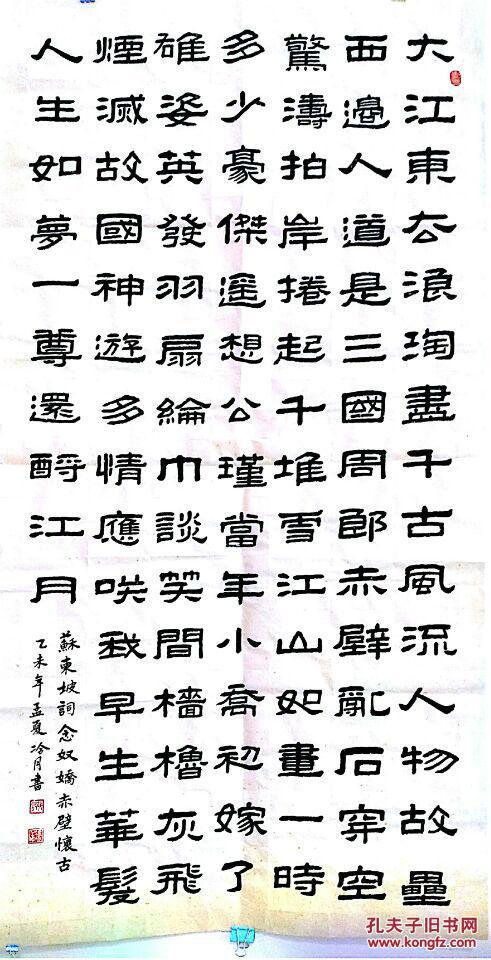 大江東去浪淘盡千古風流人物故壘
西邊人道是三國周郎赤壁亂石穿空
驚濤拍岸捲起千堆雪江山如畫一時
多少豪傑遙想公瑾當年小喬初嫁了
雄姿英發羽扇綸巾談笑間檣櫓灰飛
煙滅故國神遊多情應咲我早生華髮
人生如夢一尊還酹江月
蘇東坡詞念奴嬌赤壁懷古
乙未年孟夏冷月書
孔夫子旧书网
kongfz.com